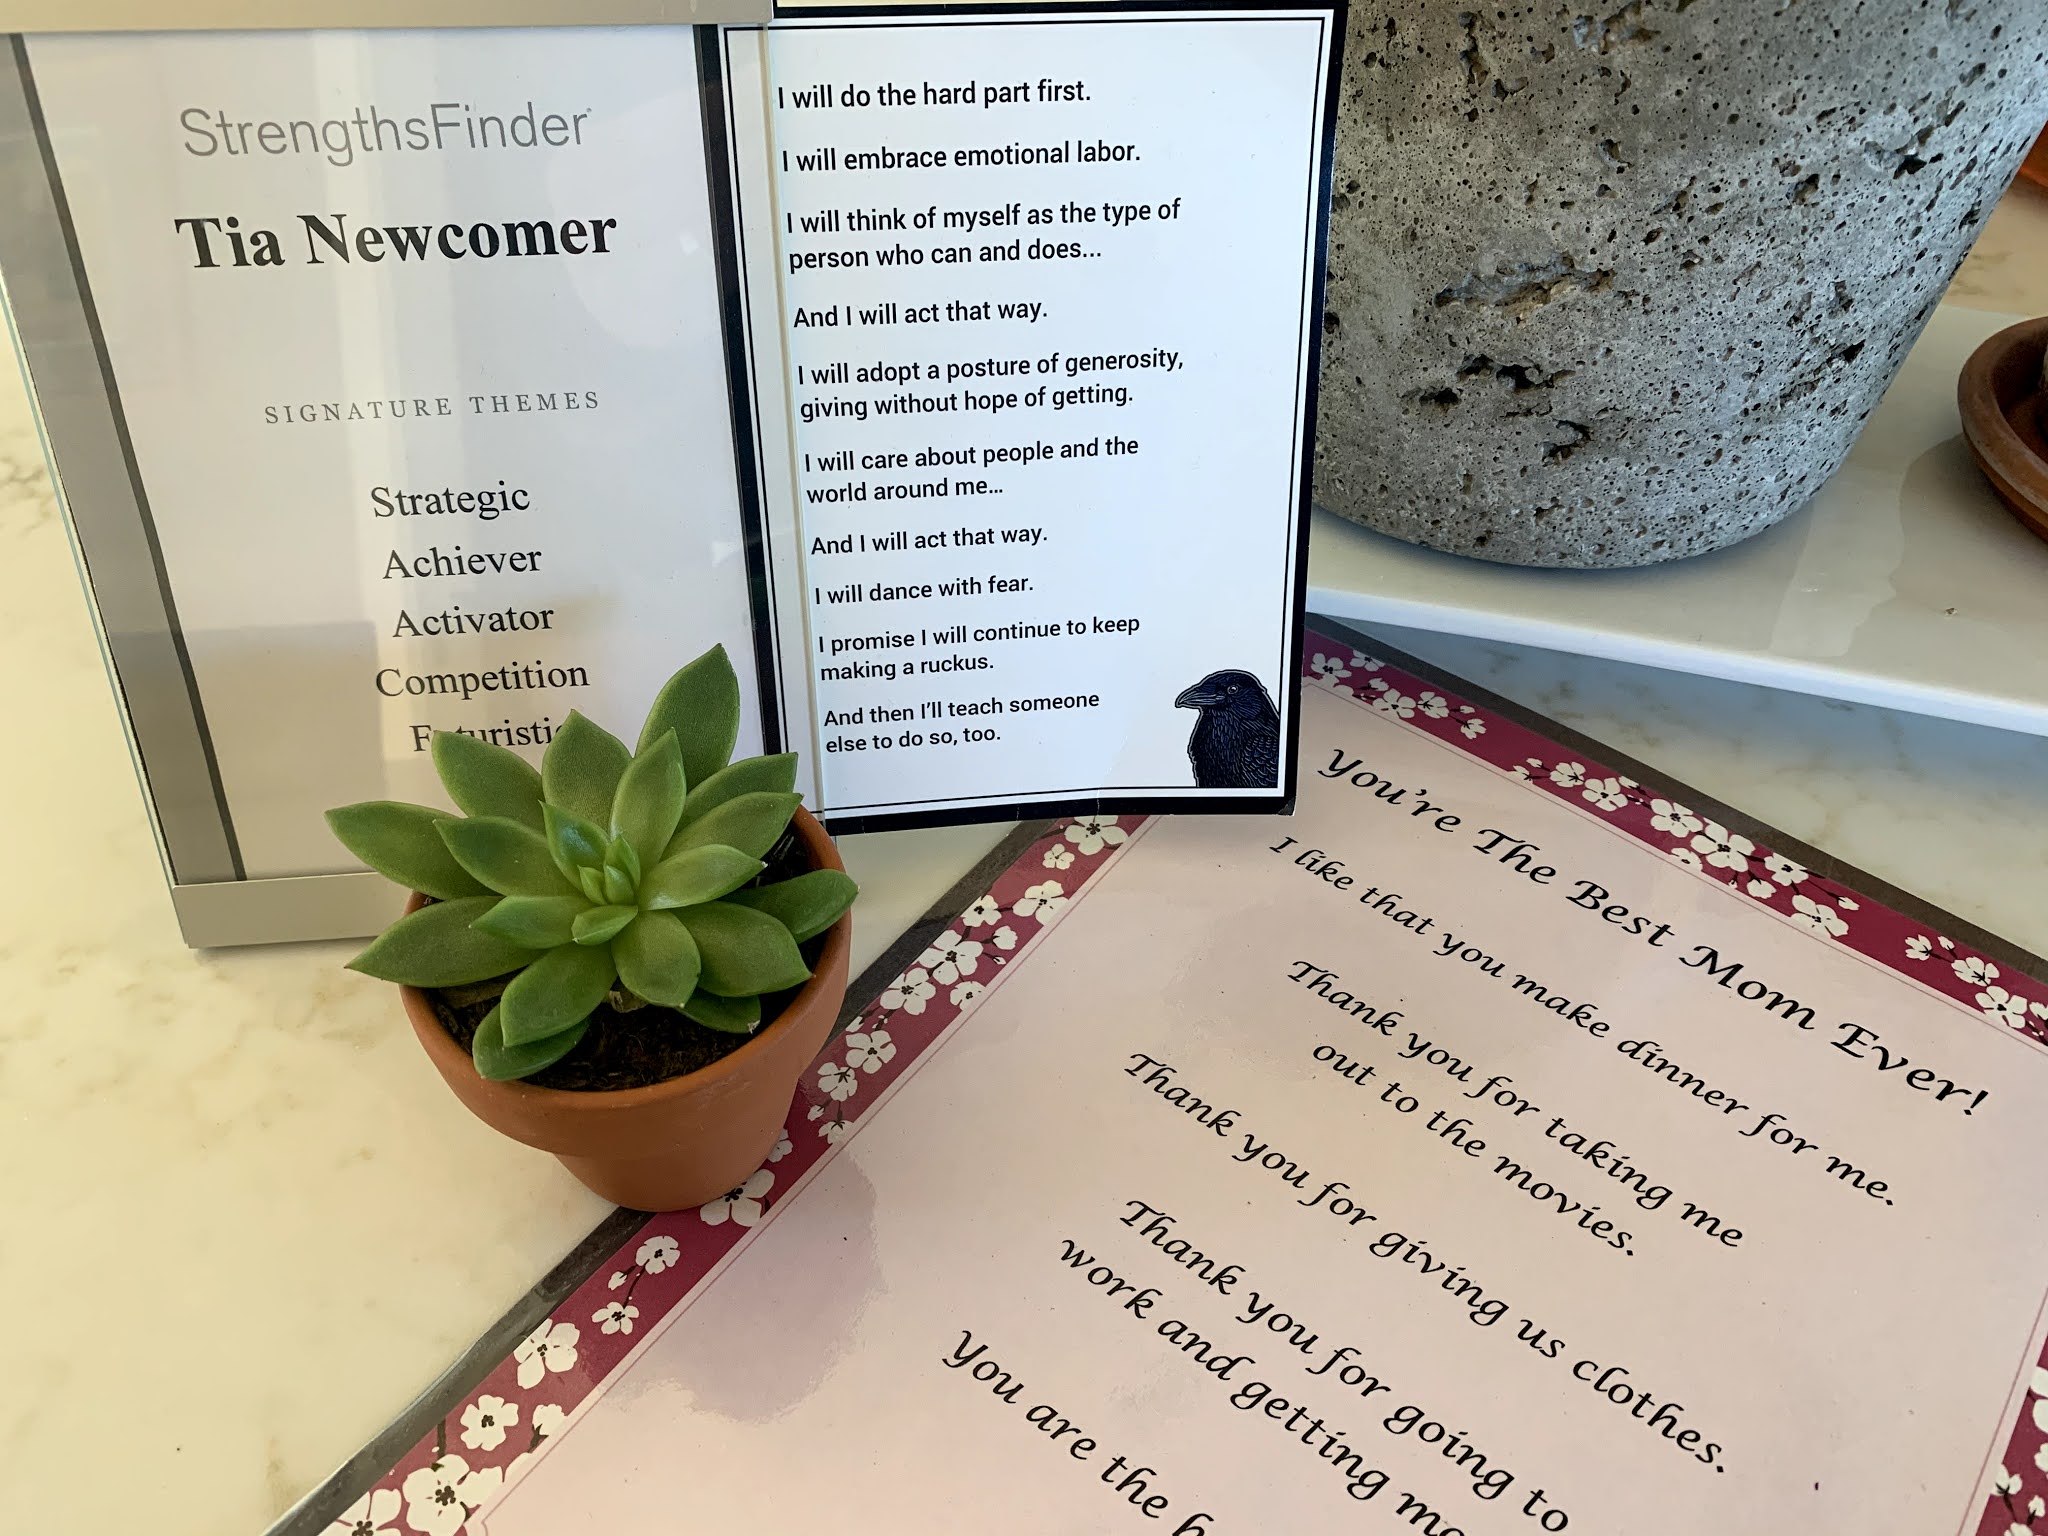 StrengthsFinder
Tia Newcomer
SIGNATURE THEMES
Strategic
Achiever
Activator
Competition
Futuristic
I will do the hard part first.
I will embrace emotional labor.
I will think of myself as the type of
person who can and does...
And I will act that way.
I will adopt a posture of generosity,
giving without hope of getting.
I will care about people and the
world around me...
And I will act that way.
I will dance with fear.
I promise I will continue to keep
making a ruckus.
And then I'll teach someone
else to do so, too.
You're The Best Mom Ever!
I like that you make dinner for me.
Thank you for taking me
out to the movies.
Thank you for giving us clothes.
Thank you for going to
work and getting
You are the